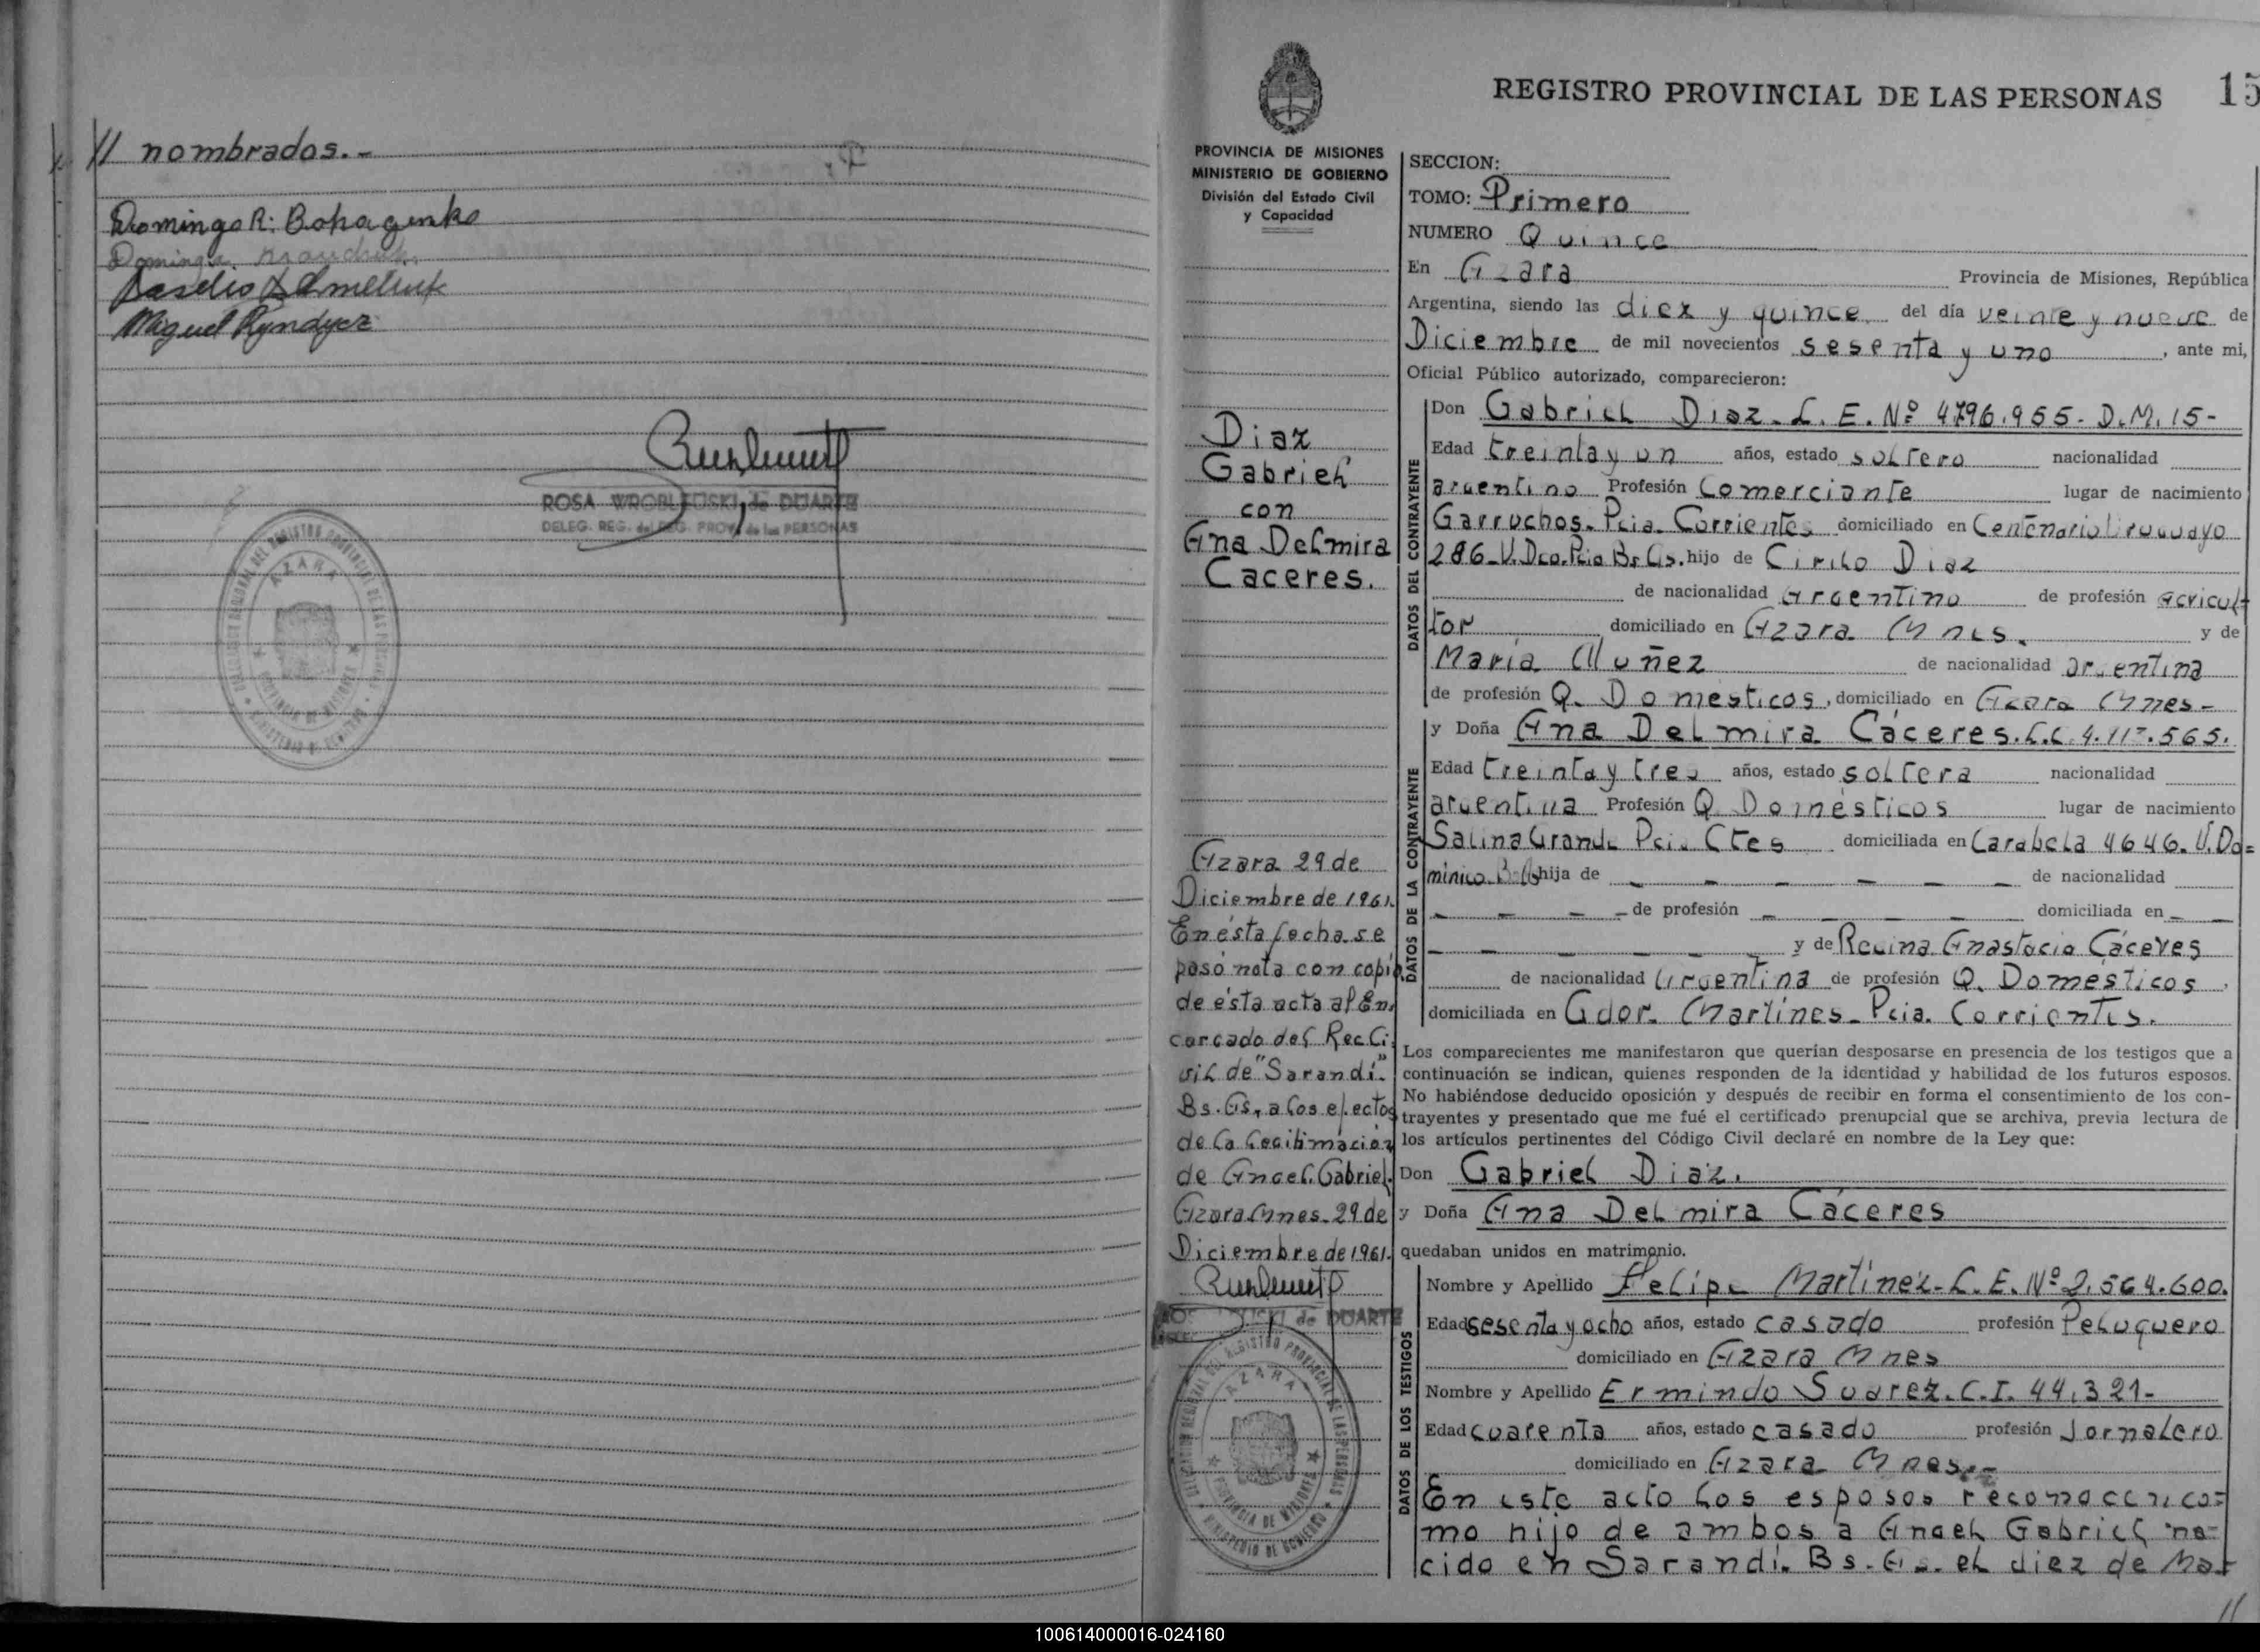 // nombrados.-
Domingo R. Bohaczenko
Miguel Ryndycz
ROSA WROBLEUSKI de DUARTE
DELEG. REG. del REG. PROV. de las PERSONAS
DELEGACION REGIONAL DEL REGISTRO PROVINCIAL DE LAS PERSONAS
AZARA
PROVINCIA DE MISIONES
MINISTERIO DE GOBIERNO
REGISTRO PROVINCIAL DE LAS PERSONAS 15
PROVINCIA DE MISIONES
MINISTERIO DE GOBIERNO
División del Estado Civil
y Capacidad
Diaz
Gabriel
con
Ana Delmira
Caceres.
Azara 29 de
Diciembre de 1961.
En ésta fecha se
pasó nota con copia
de ésta acta al En-
cargado del Reg. Ci-
vil de "Sarandí"
Bs. As. a los efectos
de la legitimación
de Angel Gabriel.
Azara Mnes. 29 de
Diciembre de 1961.
de DUARTE
DELEGACION REGIONAL DEL REGISTRO PROVINCIAL DE LAS PERSONAS
AZARA
PROVINCIA DE MISIONES
MINISTERIO DE GOBIERNO
SECCION:
TOMO: Primero
NUMERO Quince
En Azara Provincia de Misiones, República
Argentina, siendo las diez y quince del día veinte y nueve de
Diciembre de mil novecientos sesenta y uno, ante mi,
Oficial Público autorizado, comparecieron:
DATOS DEL CONTRAYENTE
Don Gabriel Diaz. L. E. Nº 4796.955- D.M. 15-
Edad treinta y un años, estado soltero nacionalidad
argentino Profesión Comerciante lugar de nacimiento
Garruchos. Pcia. Corrientes domiciliado en Centenario Uruguayo
286. V. Dco. Pcia Bs As. hijo de Cirilo Diaz
de nacionalidad Argentino de profesión agricul-
tor domiciliado en Azara Mnes. y de
María Nuñez de nacionalidad argentina
de profesión Q. Domésticos, domiciliado en Azara Mnes-
DATOS DE LA CONTRAYENTE
y Doña Ana Delmira Cáceres. L.C. 4.117.565.
Edad treinta y tres años, estado soltera nacionalidad
argentina Profesión Q. Domésticos lugar de nacimiento
Salina Grande Pcia. Ctes domiciliada en Carabela 4646. V. Do=
minico. Bs As hija de - - - - - de nacionalidad
- - - - de profesión - - - domiciliada en - -
- - - - - y de Regina Anastacia Cáceres
de nacionalidad Argentina de profesión Q. Domésticos,
domiciliada en Gdor. Martínes- Pcia. Corrientes.
Los comparecientes me manifestaron que querían desposarse en presencia de los testigos que a
continuación se indican, quienes responden de la identidad y habilidad de los futuros esposos.
No habiéndose deducido oposición y después de recibir en forma el consentimiento de los con-
trayentes y presentado que me fué el certificado prenupcial que se archiva, previa lectura de
los artículos pertinentes del Código Civil declaré en nombre de la Ley que:
Don Gabriel Diaz.
y Doña Ana Delmira Cáceres
quedaban unidos en matrimonio.
DATOS DE LOS TESTIGOS
Nombre y Apellido Felipe Martínez- L. E. Nº 2.564.600.
Edad sesenta y ocho años, estado casado profesión Peluquero
domiciliado en Azara Mnes
Nombre y Apellido Ermindo Suarez. C.I. 44.321-
Edad cuarenta años, estado casado profesión Jornalero
domiciliado en Azara Mnes.-
En este acto los esposos reconoccen co=
mo hijo de ambos a Angel Gabriel na=
cido en Sarandí. Bs. As. el diez de Mar
//
100614000016-024160